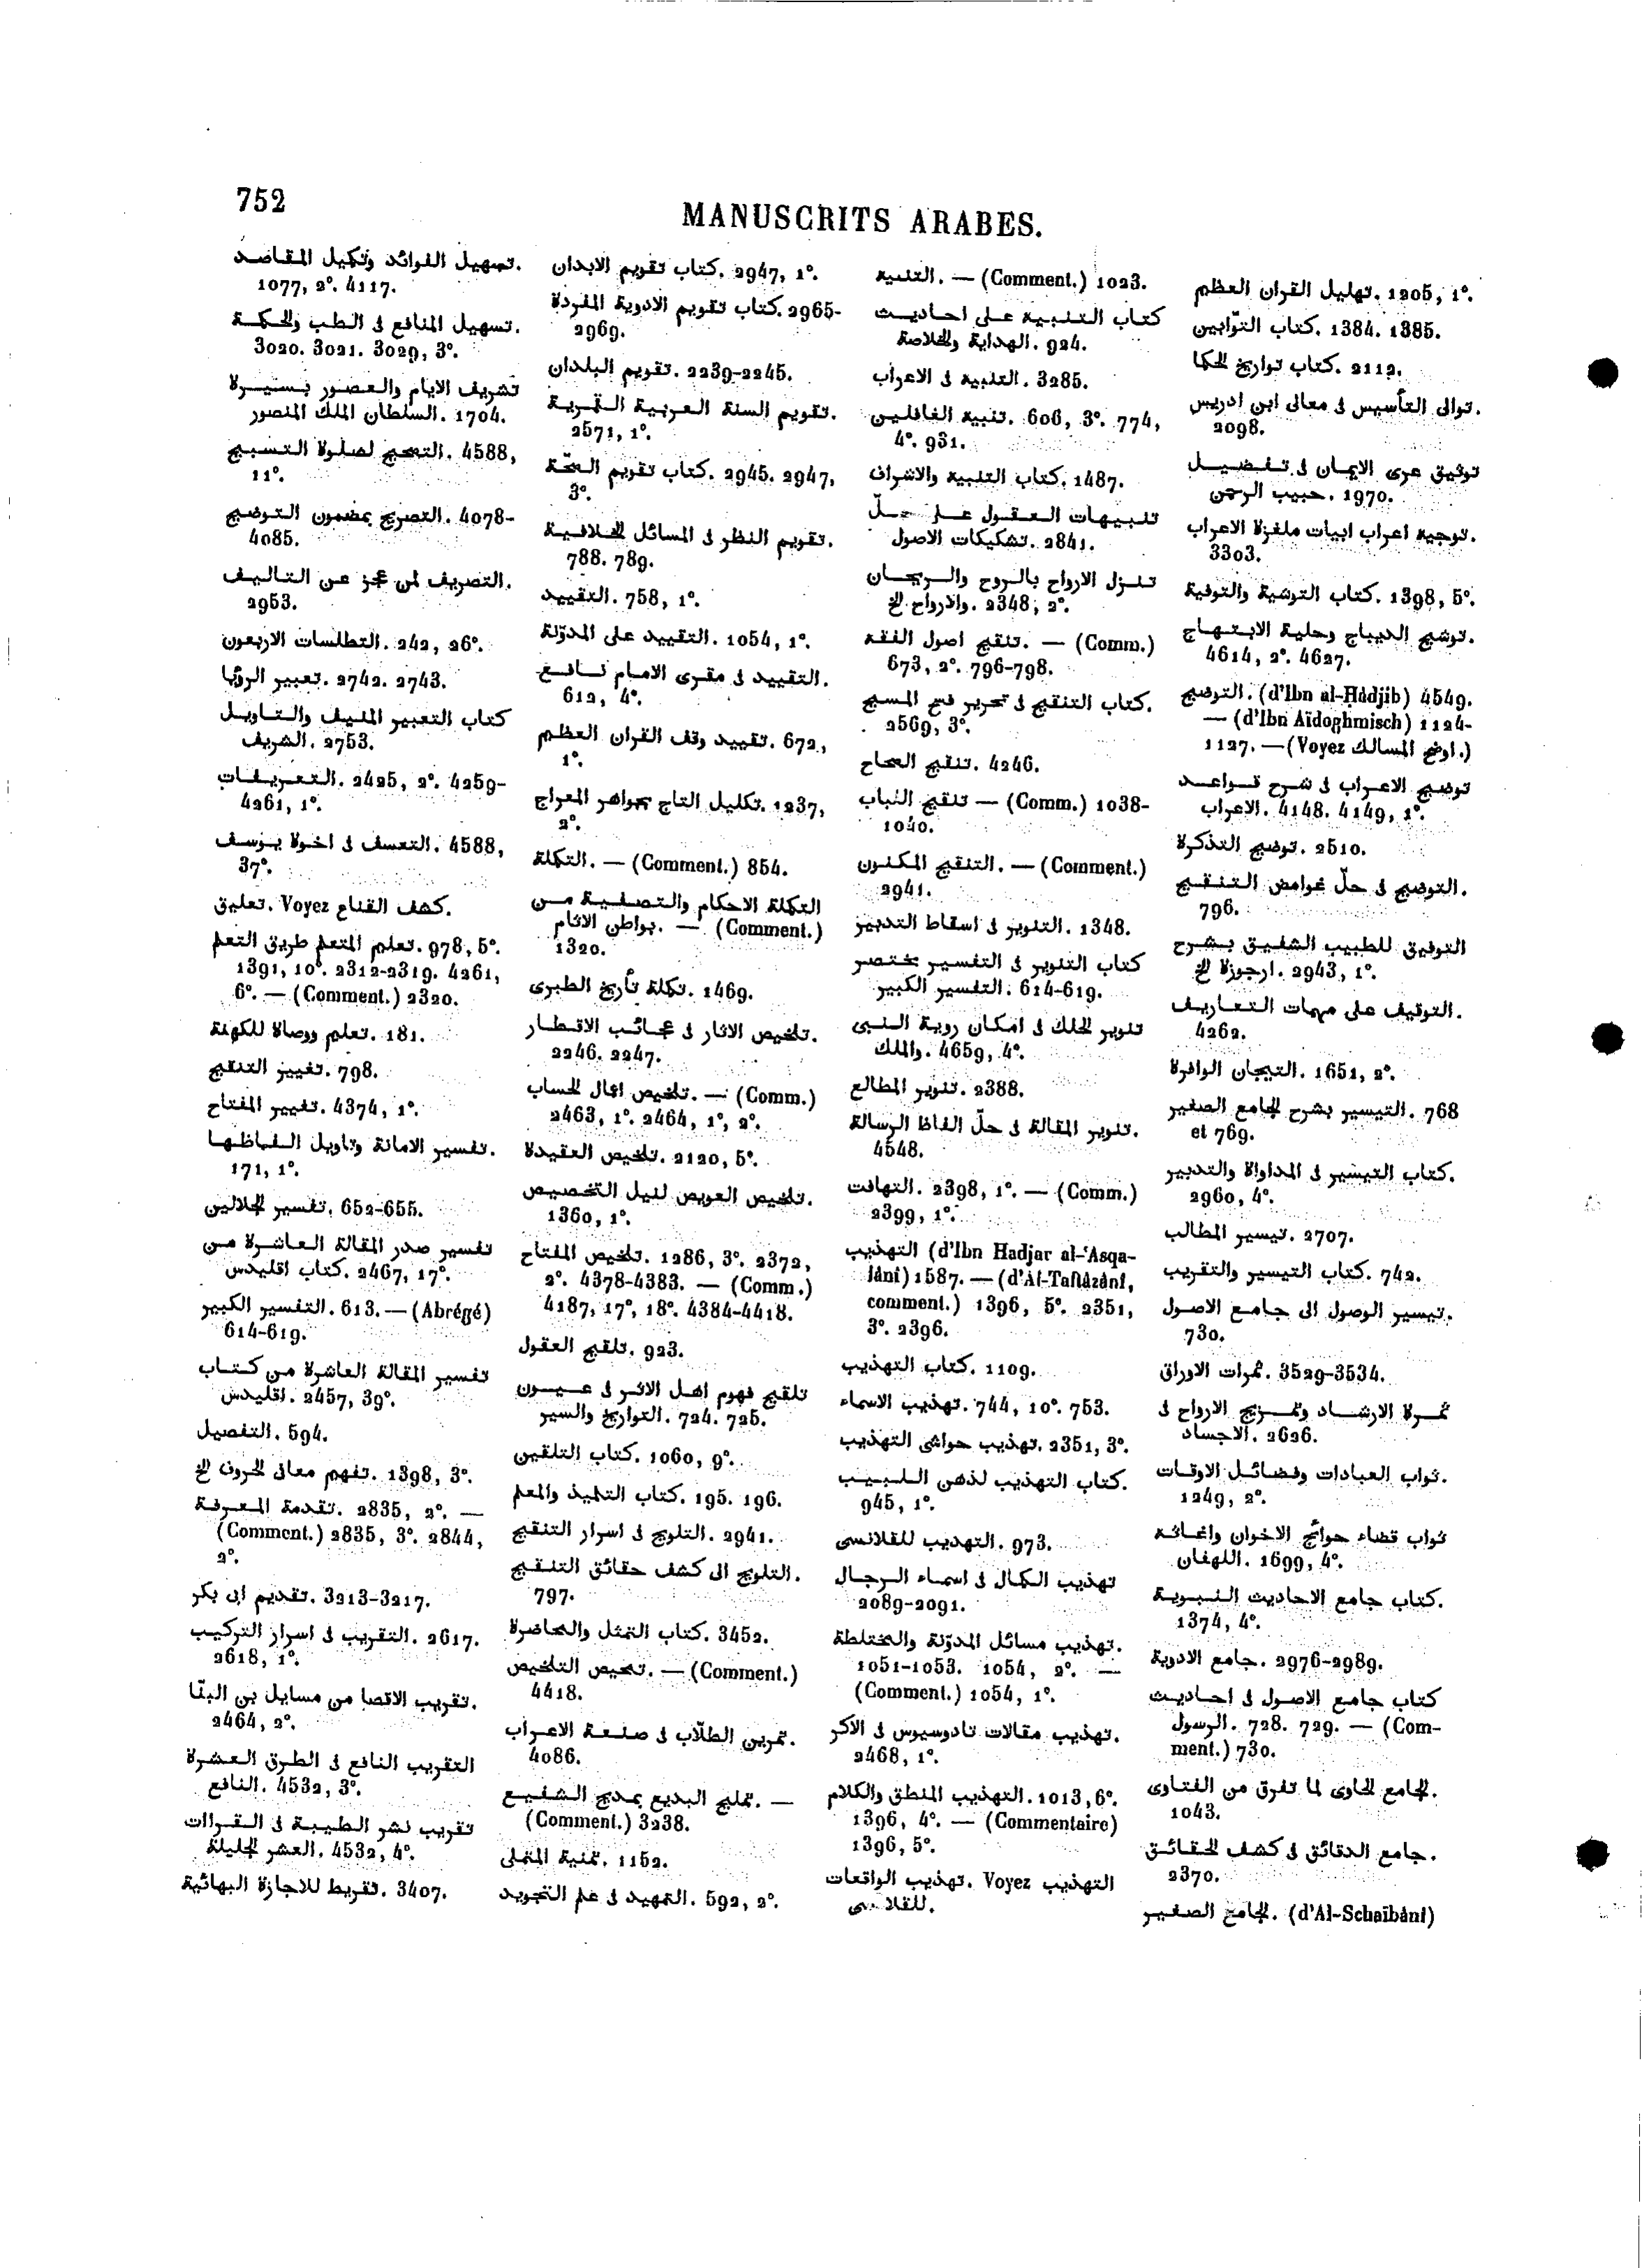 752
MANUSCRITS ARABES.
تسهيل الفوائد وتكميل المقاصد.
1077, 2°. 4117.
تسهيل المنافع فى الطب والحكمة.
3020. 3021. 3029, 3°.
تشريف الايام والعصور بسيرة
السلطان الملك المنصور. 1704.
4588, التصحيح لصلوة التسبيح.
11°.
التصريح بمضمون التوضيح. 4078-
4085.
التصريف لمن عجز عن التاليف.
2953.
التطلسات الاربعون. 242, 26°.
تعبير الرؤيا. 2742. 2743.
كتاب التعبير المنيف والتاويل
الشريف. 2753.
التعريفات. 2425, 2°. 4259-
4261, 1°.
التعسف فى اخوة يوسف. 4588,
37°.
تعليق. Voyez كشف القناع.
تعليم المتعلم طريق التعلم. 978, 5°.
1391, 10°. 2312-2319. 4261,
6°. — (Comment.) 2320.
تعليم ووصاة للكهنة. 181.
تغيير التنقيح. 798.
تغيير المفتاح. 4374, 1°.
تفسير الامانة وتاويل الفاظها.
171, 1°.
تفسير الجلالين. 652-655.
تفسير صدر المقالة العاشرة من
كتاب اقليدس. 2467, 17°.
التفسير الكبير. 613. — (Abrégé)
614-619.
تفسير المقالة العاشرة من كتاب
اقليدس. 2457, 39°.
التفصيل. 594.
تفهم معانى الحروف الخ. 1398, 3°.
تقدمة المعرفة. 2835, 2°. —
(Comment.) 2835, 3°. 2844,
2°.
تقديم ابى بكر. 3213-3217.
التقريب فى اسرار التركيب. 2617.
2618, 1°.
تقريب الاقصا من مسايل بن البنّا.
2464, 2°.
التقريب النافع فى الطرق العشرة
النافع. 4532, 3°.
تقريب نشر الطيبة فى القراات
العشر الجليلة. 4532, 4°.
تقريط للاجازة البهائية. 3407.
كتاب تقويم الابدان. 2947, 1°.
كتاب تقويم الادوية المفردة. 2965-
2969.
تقويم البلدان. 2239-2245.
تقويم السنة العربية القمرية.
2571, 1°.
كتاب تقويم الصحّة. 2945. 2947,
3°.
تقويم النظر فى المسائل الخلافية.
788. 789.
التقييد. 758, 1°.
التقييد على المدوّنة. 1054, 1°.
التقييد فى مقرى الامام نافع.
612, 4°.
تقييد وقف القران العظم. 672,
1°.
تكليل التاج بجواهر المعراج. 1237,
2°.
التكملة. — (Comment.) 854.
التكملة الاحكام والتصفية من
بواطن الاثام. — (Comment.)
1320.
تكملة تأريخ الطبرى. 1469.
تلخيص الاثار فى عجائب الاقطار.
2246. 2247.
تلخيص اعمال الحساب. — (Comm.)
2463, 1°. 2464, 1°, 2°.
تلخيص العقيدة. 2120, 5°.
تلخيص العويص لنيل التخصيص.
1360, 1°.
تلخيص المفتاح. 1286, 3°. 2372,
2°. 4378-4383. — (Comm.)
4187, 17°, 18°. 4384-4418.
تلقيح العقول. 923.
تلقيح فهوم اهل الاثر فى عيون
التواريخ والسير. 724. 725.
كتاب التلقين. 1060, 9°.
كتاب التلميذ والمعلم. 195. 196.
التلويح فى اسرار التنقيح. 2941.
التلويح الى كشف حقائق التنقيح.
797.
كتاب التمثل والمحاضرة. 3452.
تمحيص التلخيص. — (Comment.)
4418.
تمرين الطلّاب فى صنعة الاعراب.
4086.
تمليح البديع بمديح الشفيع. —
(Comment.) 3238.
تمنية المتملى. 1152.
التمهيد فى علم التجويد. 592, 2°.
التنبيه. — (Comment.) 1023.
كتاب التنبيه على احاديث
الهداية والخلاصة. 924.
التنبيه فى الاعراب. 3285.
تنبيه الغافلين. 606, 3°. 774,
4°. 931.
كتاب التنبيه والاشراف. 1487.
تنبيهات العقول على حلّ
تشكيكات الاصول. 2841.
تنزل الارواح بالروح والريحان
والارواح الخ. 2348, 2°.
تنقيح اصول الفقه. — (Comm.)
673, 2°. 796-798.
كتاب التنقيح فى تحرير فسح المسيح.
2569, 3°.
تنقيح الصحاح. 4246.
تنقيح اللباب — (Comm.) 1038-
1040.
التنقيح المكنون. — (Comment.)
2941.
التنوير فى اسقاط التدبير. 1348.
كتاب التنوير فى التفسير مختصر
التفسير الكبير. 614-619.
تنوير الحلك فى امكان روية النبى
والملك. 4659, 4°.
تنوير المطالع. 2388.
تنوير المقالة فى حلّ الفاظ الرسالة.
4548.
التهافت. 2398, 1°. — (Comm.)
2399, 1°.
التهذيب (d'Ibn Hadjar al-'Asqa-
lânî) 1587. — (d'Al-Taftâzânî,
comment.) 1396, 5°. 2351,
3°. 2396.
كتاب التهذيب. 1109.
تهذيب الاسماء. 744, 10°. 753.
تهذيب حواشى التهذيب. 2351, 3°.
كتاب التهذيب لذهن اللبيب.
945, 1°.
التهديب للقلانسى. 973.
تهذيب الكمال فى اسماء الرجال
2089-2091.
تهذيب مسائل المدوّنة والمختلطة.
1051-1053. 1054, 2°. —
(Comment.) 1054, 1°.
تهذيب مقالات تادوسيوس فى الاكر.
2468, 1°.
التهذيب المنطق والكلام. 1013, 6°.
1396, 4°. — (Commentaire)
1396, 5°.
تهذيب الواقعات. Voyez التهذيب
للقلانسى.
تهليل القران العظم. 1205, 1°.
كتاب التوّابين. 1384. 1385.
كتاب تواريخ الحكما. 2112.
توالى التأسيس فى معالى ابن ادريس.
2098.
توثيق عرى الايمان فى تفضيل
حبيب الرحمن. 1970.
توجيه اعراب ابيات ملغزة الاعراب.
3303.
كتاب التوشية والتوفية. 1398, 5°.
توشيح الديباج وحلية الابتهاج.
4614, 2°. 4627.
التوضيح. (d'Ibn al-Hâdjib) 4549.
— (d'Ibn Aïdoghmisch) 1124-
1127. — (Voyez اوضح المسالك.)
توضيح الاعراب فى شرح قواعد
الاعراب. 4148. 4149, 1°.
توضيح التذكرة. 2510.
التوضيح فى حلّ غوامض التنقيح.
796.
التوفيق للطبيب الشفيق بشرح
ارجوزة الخ. 2943, 1°.
التوقيف على مهمات التعاريف.
4262.
التيجان الوافرة. 1651, 2°.
التيسير بشرح الجامع الصغير. 768
et 769.
كتاب التيسير فى المداواة والتدبير.
2960, 4°.
تيسير المطالب. 2707.
كتاب التيسير والتقريب. 742.
تيسير الوصول الى جامع الاصول.
730.
ثمرات الاوراق. 3529-3534.
ثمرة الارشاد وتمزيج الارواح فى
الاجساد. 2626.
ثواب العبادات وفضائل الاوقات.
1249, 2°.
ثواب قضاء حوائج الاخوان واغاثه
اللهفان. 1699, 4°.
كتاب جامع الاحاديث النبوية.
1374, 4°.
جامع الادوية. 2976-2989.
كتاب جامع الاصول فى احاديث
الرسول. 728. 729. — (Com-
ment.) 730.
الجامع الحاوى لما تفرق من الفتاوى.
1043.
جامع الدقائق فى كشف الحقائق.
2370.
الجامع الصغير. (d'Al-Schaïbânî)